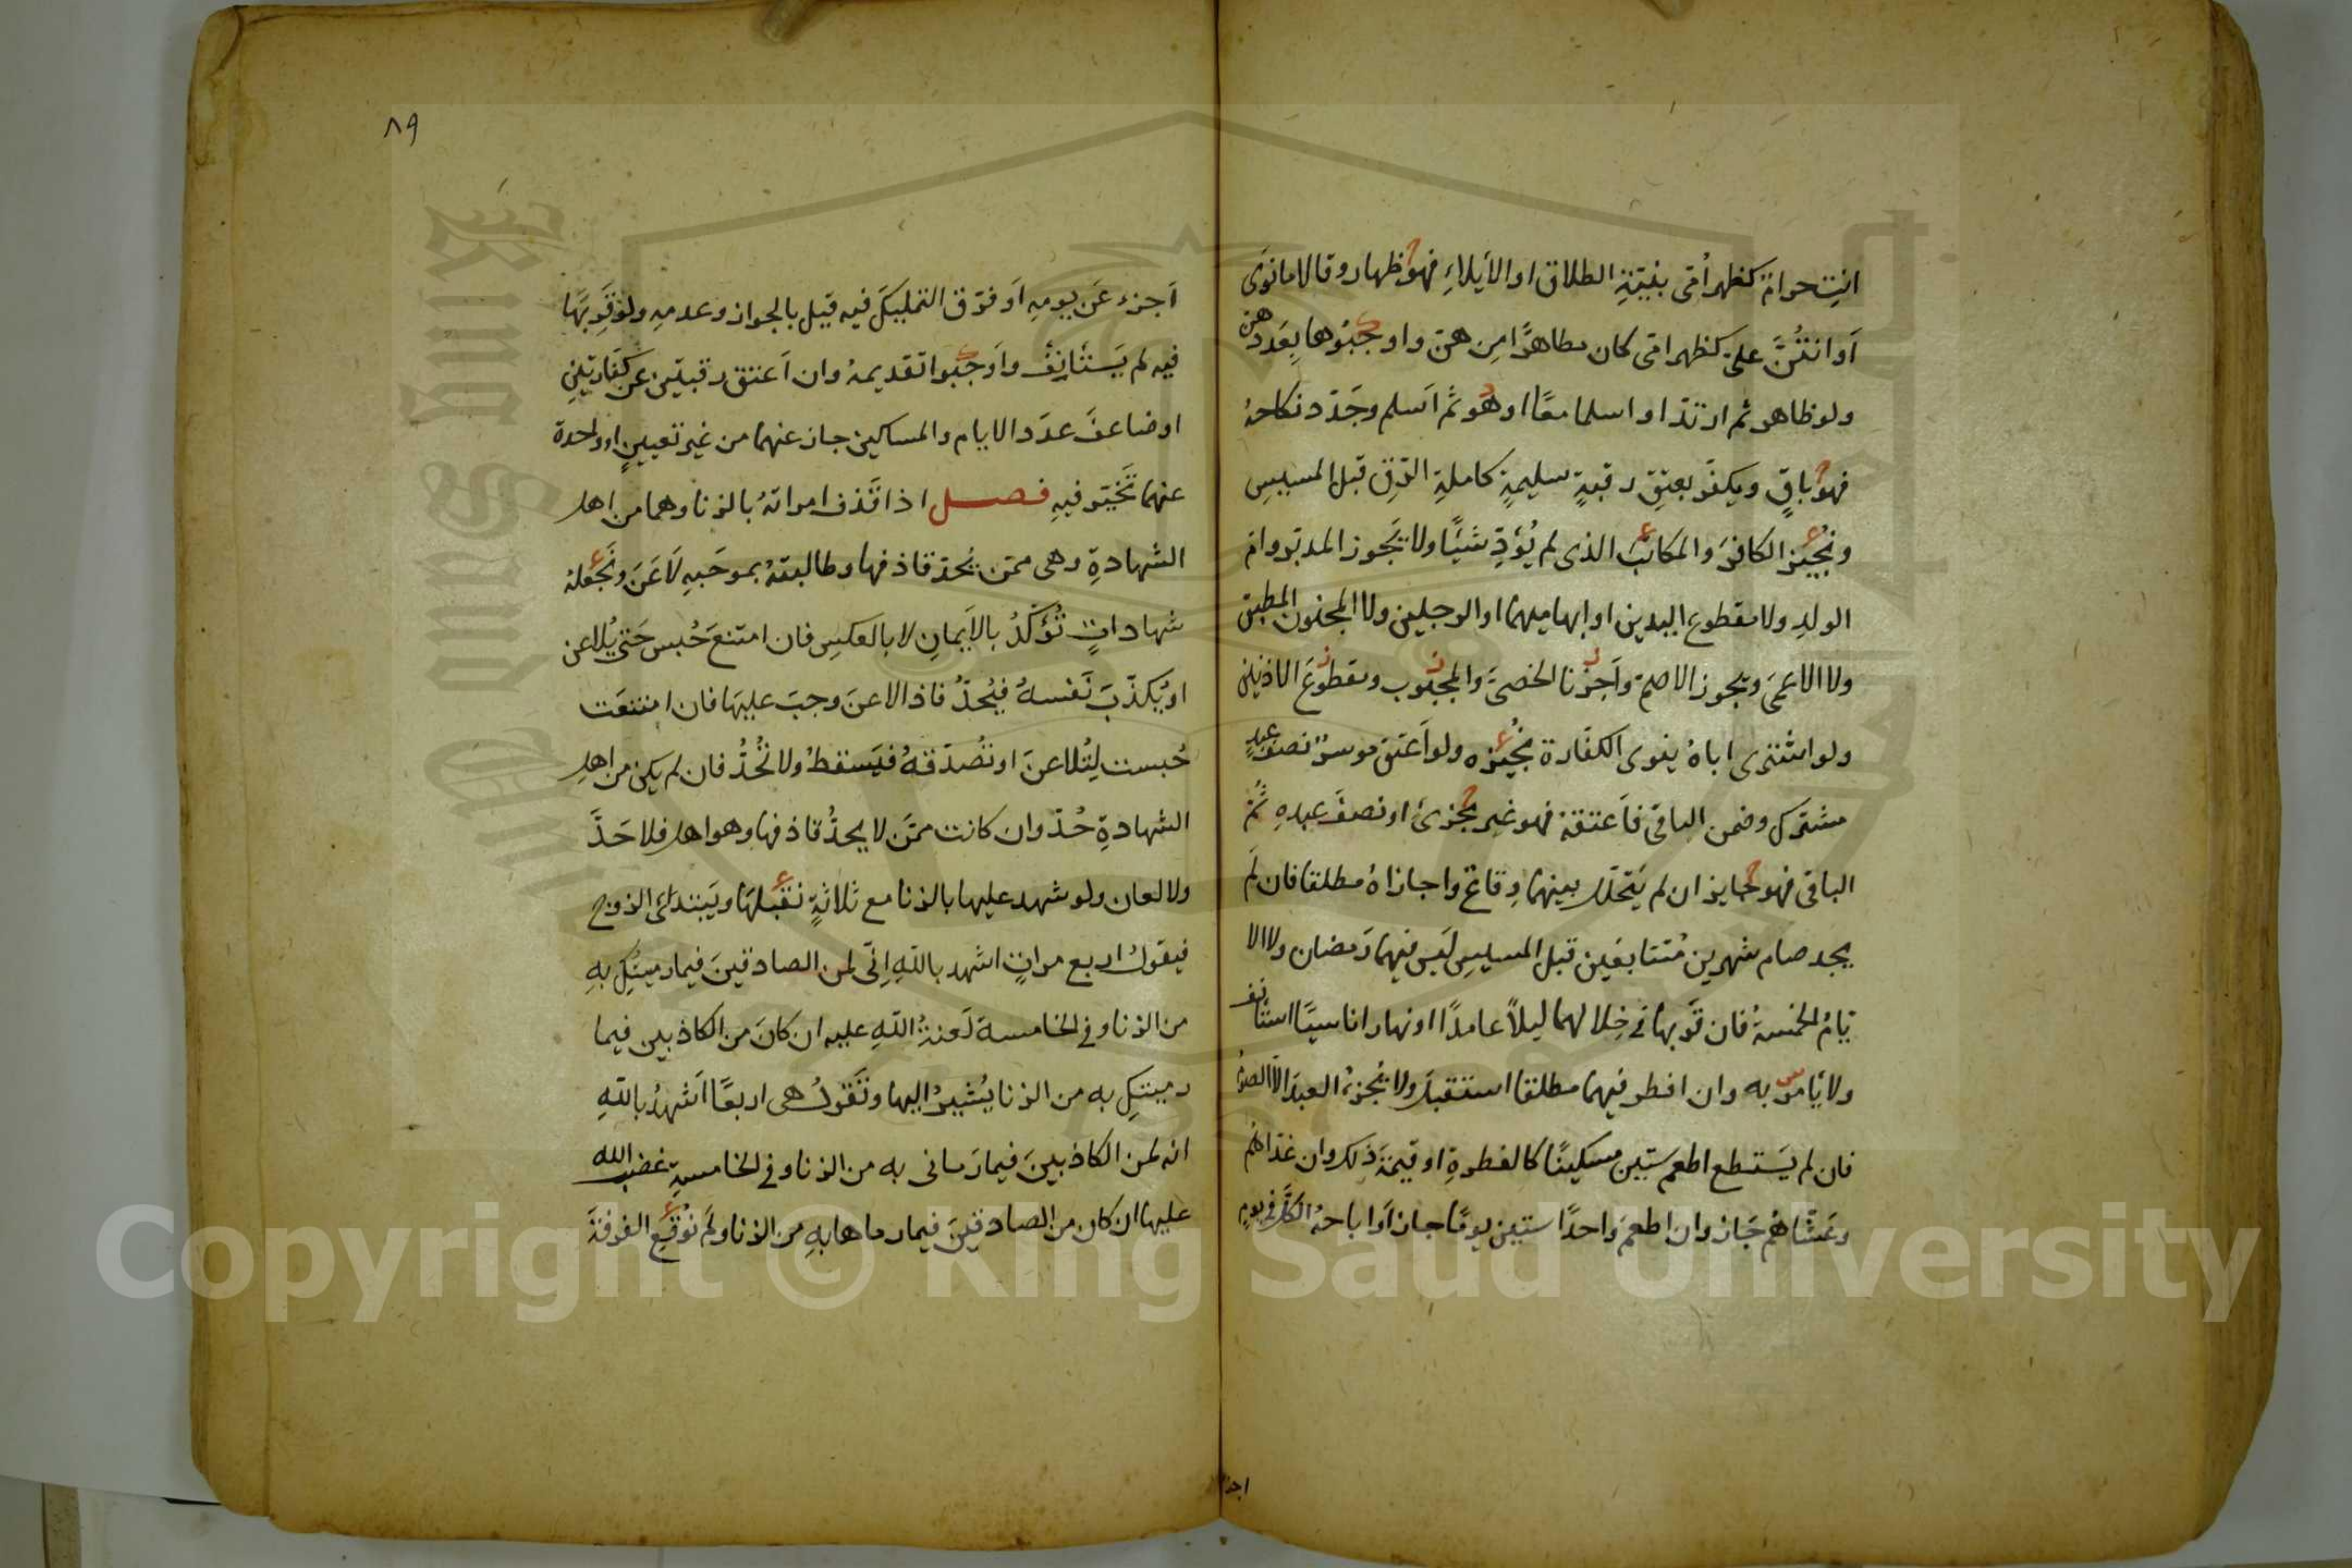 انتِ حرام كظهر أمّى بنيّةِ الطلاق او الأيلاءِ فهو ظهار وقالا ما نوَى
اَو انتُنَّ علىّ كظهر امّى كان مظاهرًا مِن هنّ واوجبُوها بِعَددهن
ولو ظاهر ثم ارتدّا واسلما معًا او هو ثم اَسلم وجَدّد نكاحهُ
فهو باقٍ ويكفّر بعتقِ رقبةٍ سليمةٍ كاملةِ الرّقِ قبل المسيسِ
ونُجيز الكافرَ والمكاتبَ الذى لم يُؤدِّ شيًا ولا يَجوز المدبّر وام
الولدِ ولا مقطوع اليدين او ابهاميهما او الرجلين ولا المجنون المطبق
ولا الاعمَى ويجوز الاصم واَجزنا الخصىَّ والمجبُوب ومقطوعَ الاذنين
ولو اشترى اباهُ ينوى الكفّارة نُجيزه ولو اَعتق موسرٌ نصفَ عبدٍ
مشترك وضمن الباقى فاَعتقهُ فهو غير مجزئ او نصفَ عبدهِ ثُمّ
الباقى فهو جايز ان لم يَتخلّل بينهما وِقاعٌ واجازاهُ مطلقا فان لَم
يجد صام شهرين مُتتابعَين قبل المسيسِ لَيس فيهما رَمضان ولا الا
يّامُ الخمسةُ فان قَربها فى خِلالهما ليلاً عامدًا او نهارا ناسيًا استانف
ولا يَامر به وان افطر فيهما مطلقا استقبلَ ولا يُجزئُ العبدَ الاّ الصومُ
فان لم يَستطع اطعم ستين مسكينًا كالفطرةِ او قيمةَ ذلك وان غدّاهُم
وعَشّاهُم جَاز وان اطعمَ وَاحدًا ستين يومًا جاز اَو اباحهُ الكلَّ فى يومٍ
اجزا
٨٩
اَجزء عَن يومِهِ اَو فرّق التمليكَ فيه قيل بالجواز وعدمِهِ ولو قَرِبَهَا
فيه لم يَستَانِفُ واَوجبُوا تقديمهُ وان اَعتق رقبتين عن كفّارتينِ
او ضاعفَ عدَد الايام والمساكين جاز عنهما من غير تعيينٍ او واحدة
عنهما تَخيّر فيهِ فصل اذا قَذف امراتهُ بالزنا وهما من اهل
الشهادةِ وهى ممّن يُحدّ قاذفها وطالبتهُ بموجَبِهِ لَاعَنَ ونَجعلهُ
شهاداتٍ تُؤكَّدُ بالاَيمانِ لا بالعكسِ فان امتنعَ حُبس حَتى يُلاعن
او يُكذّبَ نَفسهُ فيُحدُّ فاذا لاعنَ وجبَ عليهَا فان امتنعَت
حُبست لِتُلاعنَ او تُصدّقهُ فيَسقطُ ولا تُحدُّ فان لم يكن من اهلِ
الشهادةِ حُدّ وان كانت ممّن لا يحدُّ قاذفها وهو اهل فلا حَدَّ
ولا لعان ولو شهد عليها بالزنا مع ثلاثةٍ نقبلهَا ويَبتدئ الزوج
فيقولُ اربع مراتٍ اشهد باللهِ اِنّى لمن الصادقينَ فيما رميتكِ بهِ
من الزنا وفى الخامسة لَعنةُ اللهِ عليه ان كانَ من الكاذبين فيما
رميتكِ به من الزنا يُشيرُ اليها وتَقولُ هى اربعًا اَشهدُ باللهِ
انه لمن الكاذبينَ فيما رَمانى به من الزنا وفى الخامسةِ غضب الله
عليها ان كان من الصادقينَ فيما رماها بهِ من الزنا ولَم نُوقعِ الفرقةَ
Copyright © King Saud University